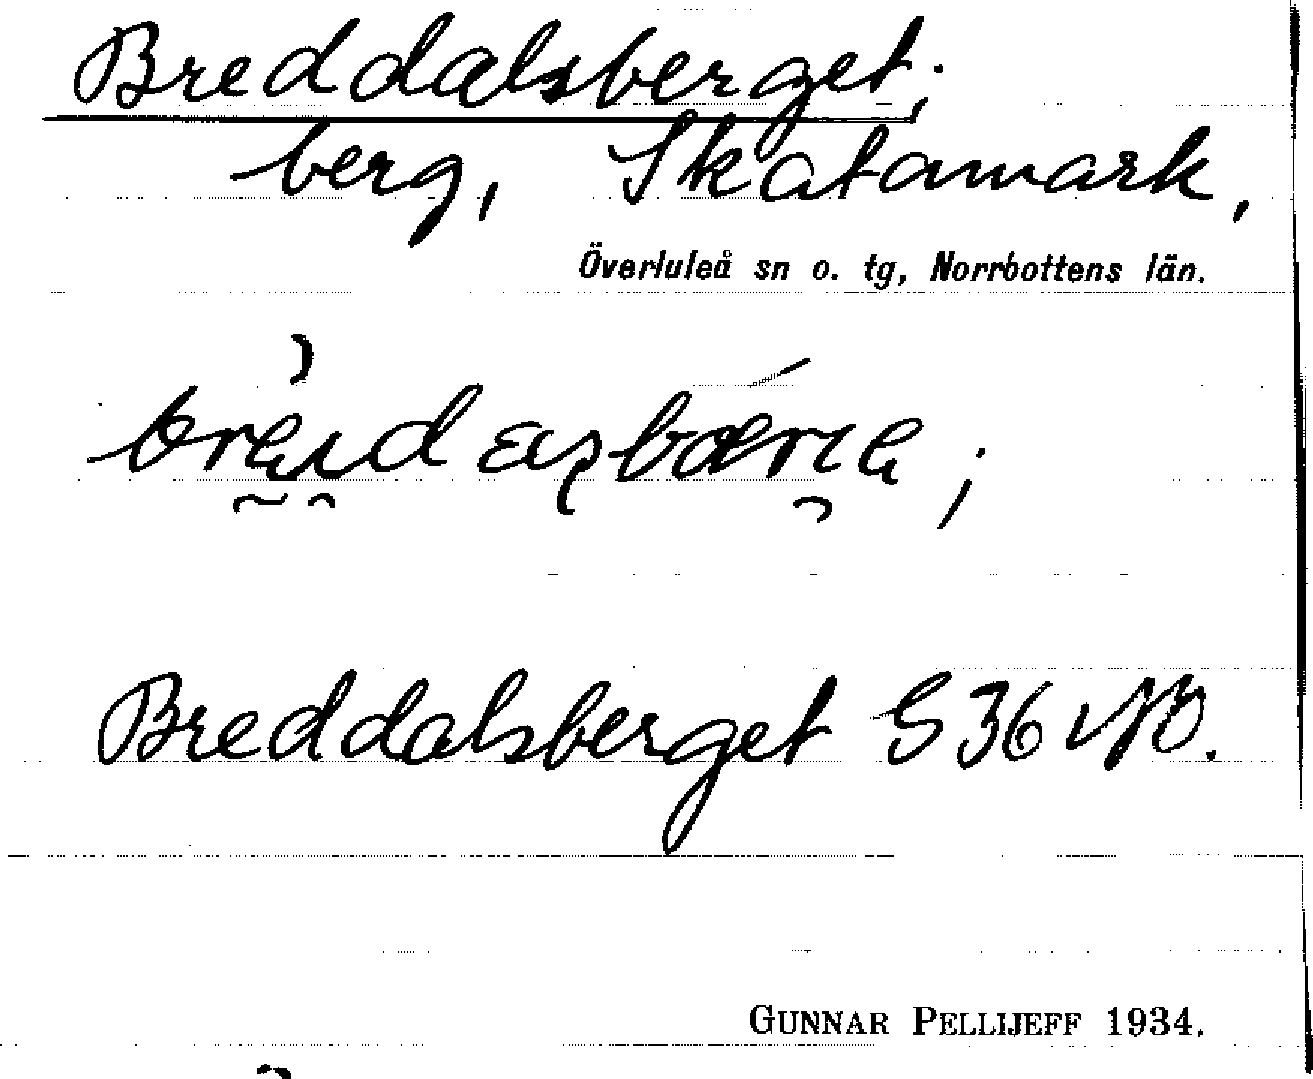 Breddalsberget;
berg, Skatamark,
Överluleå sn o. tg, Norrbottens län.
Breddalsberget S 36 NO.
GUNNAR PELLIJEFF 1934.